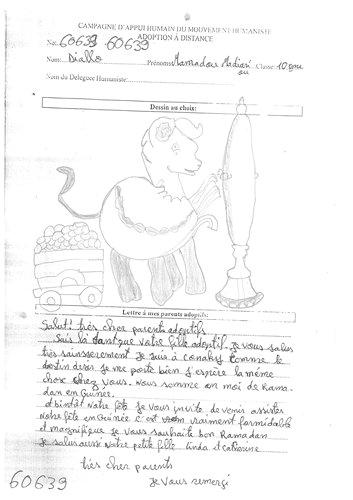 CAMPAGNE D'APPUI HUMAIN DU MOUVEMENT HUMANISTE
ADOPTION À DISTANCE
No: 60639 60639
Nom: Diallo Prénoms: Mamadou Classe: 10
Nom du Delegeee Humaniste:
Dessin au choix:
Lettre à mes parents adoptifs:
Salut! très cher parents adoptifs
Suis la votre fille adoptif. je vous salus
très je suis à conakry comme le
destin je me porte bien j'espère la même
chose chez vous. Nous somme en moi de Rama-
dan en Guinée.
et bientôt Notre fête je vous invite de venir assister
Notre fête en Guinée c'est vraiment formidable
et magnifique je vous souhaite bon Ramadan
je salus aussi Notre petite fille Linda et
très cher parents
60639 je vous remerçi